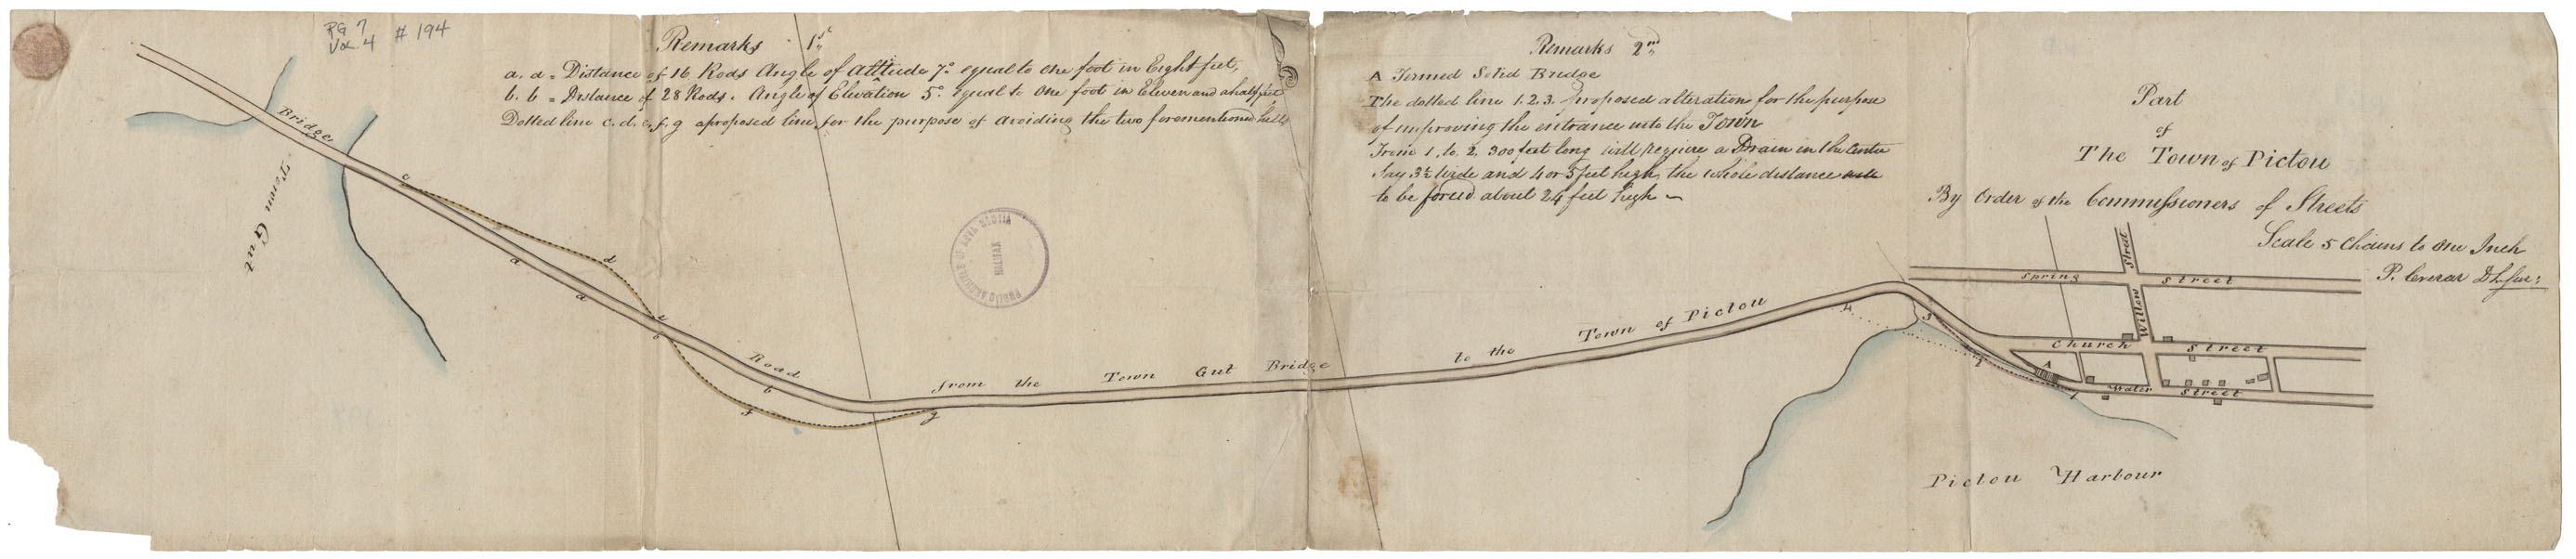 RG 7
Vol. 4 # 194
Remarks 1st
a. a = Distance of 16 Rods Angle of Altitude 7° equal to one foot in Eight feet,
b. b = Distance of 28 Rods. Angle of Elevation 5° equal to one foot in Eleven and a half feet
Dotted line c. d. e. f. g a proposed line, for the purpose of avoiding the two forementioned hills
Remarks 2nd
A Termed Solid Bridge
The dotted line 1. 2. 3. proposed alteration for the purpose
of improving the entrance into the Town
From 1, to 2, 300 feet long will require a Drain in the Center
Say 3½ wide and 4 or 5 feet high, the whole distance
to be forced about 24 feet high
Part
of
The Town of Pictou
By Order of the Commissioners of Streets
Scale 5 Chains to One Inch
P. Crerar D L Sur:
Bridge
Town Gut
c
a
a
d
e
b
b
f
g
Road from the Town Gut Bridge to the Town of Pictou
PUBLIC ARCHIVES OF NOVA SCOTIA
HALIFAX
Spring Street
Willow Street
Church Street
Water Street
4
3
2
1
A
Pictou Harbour